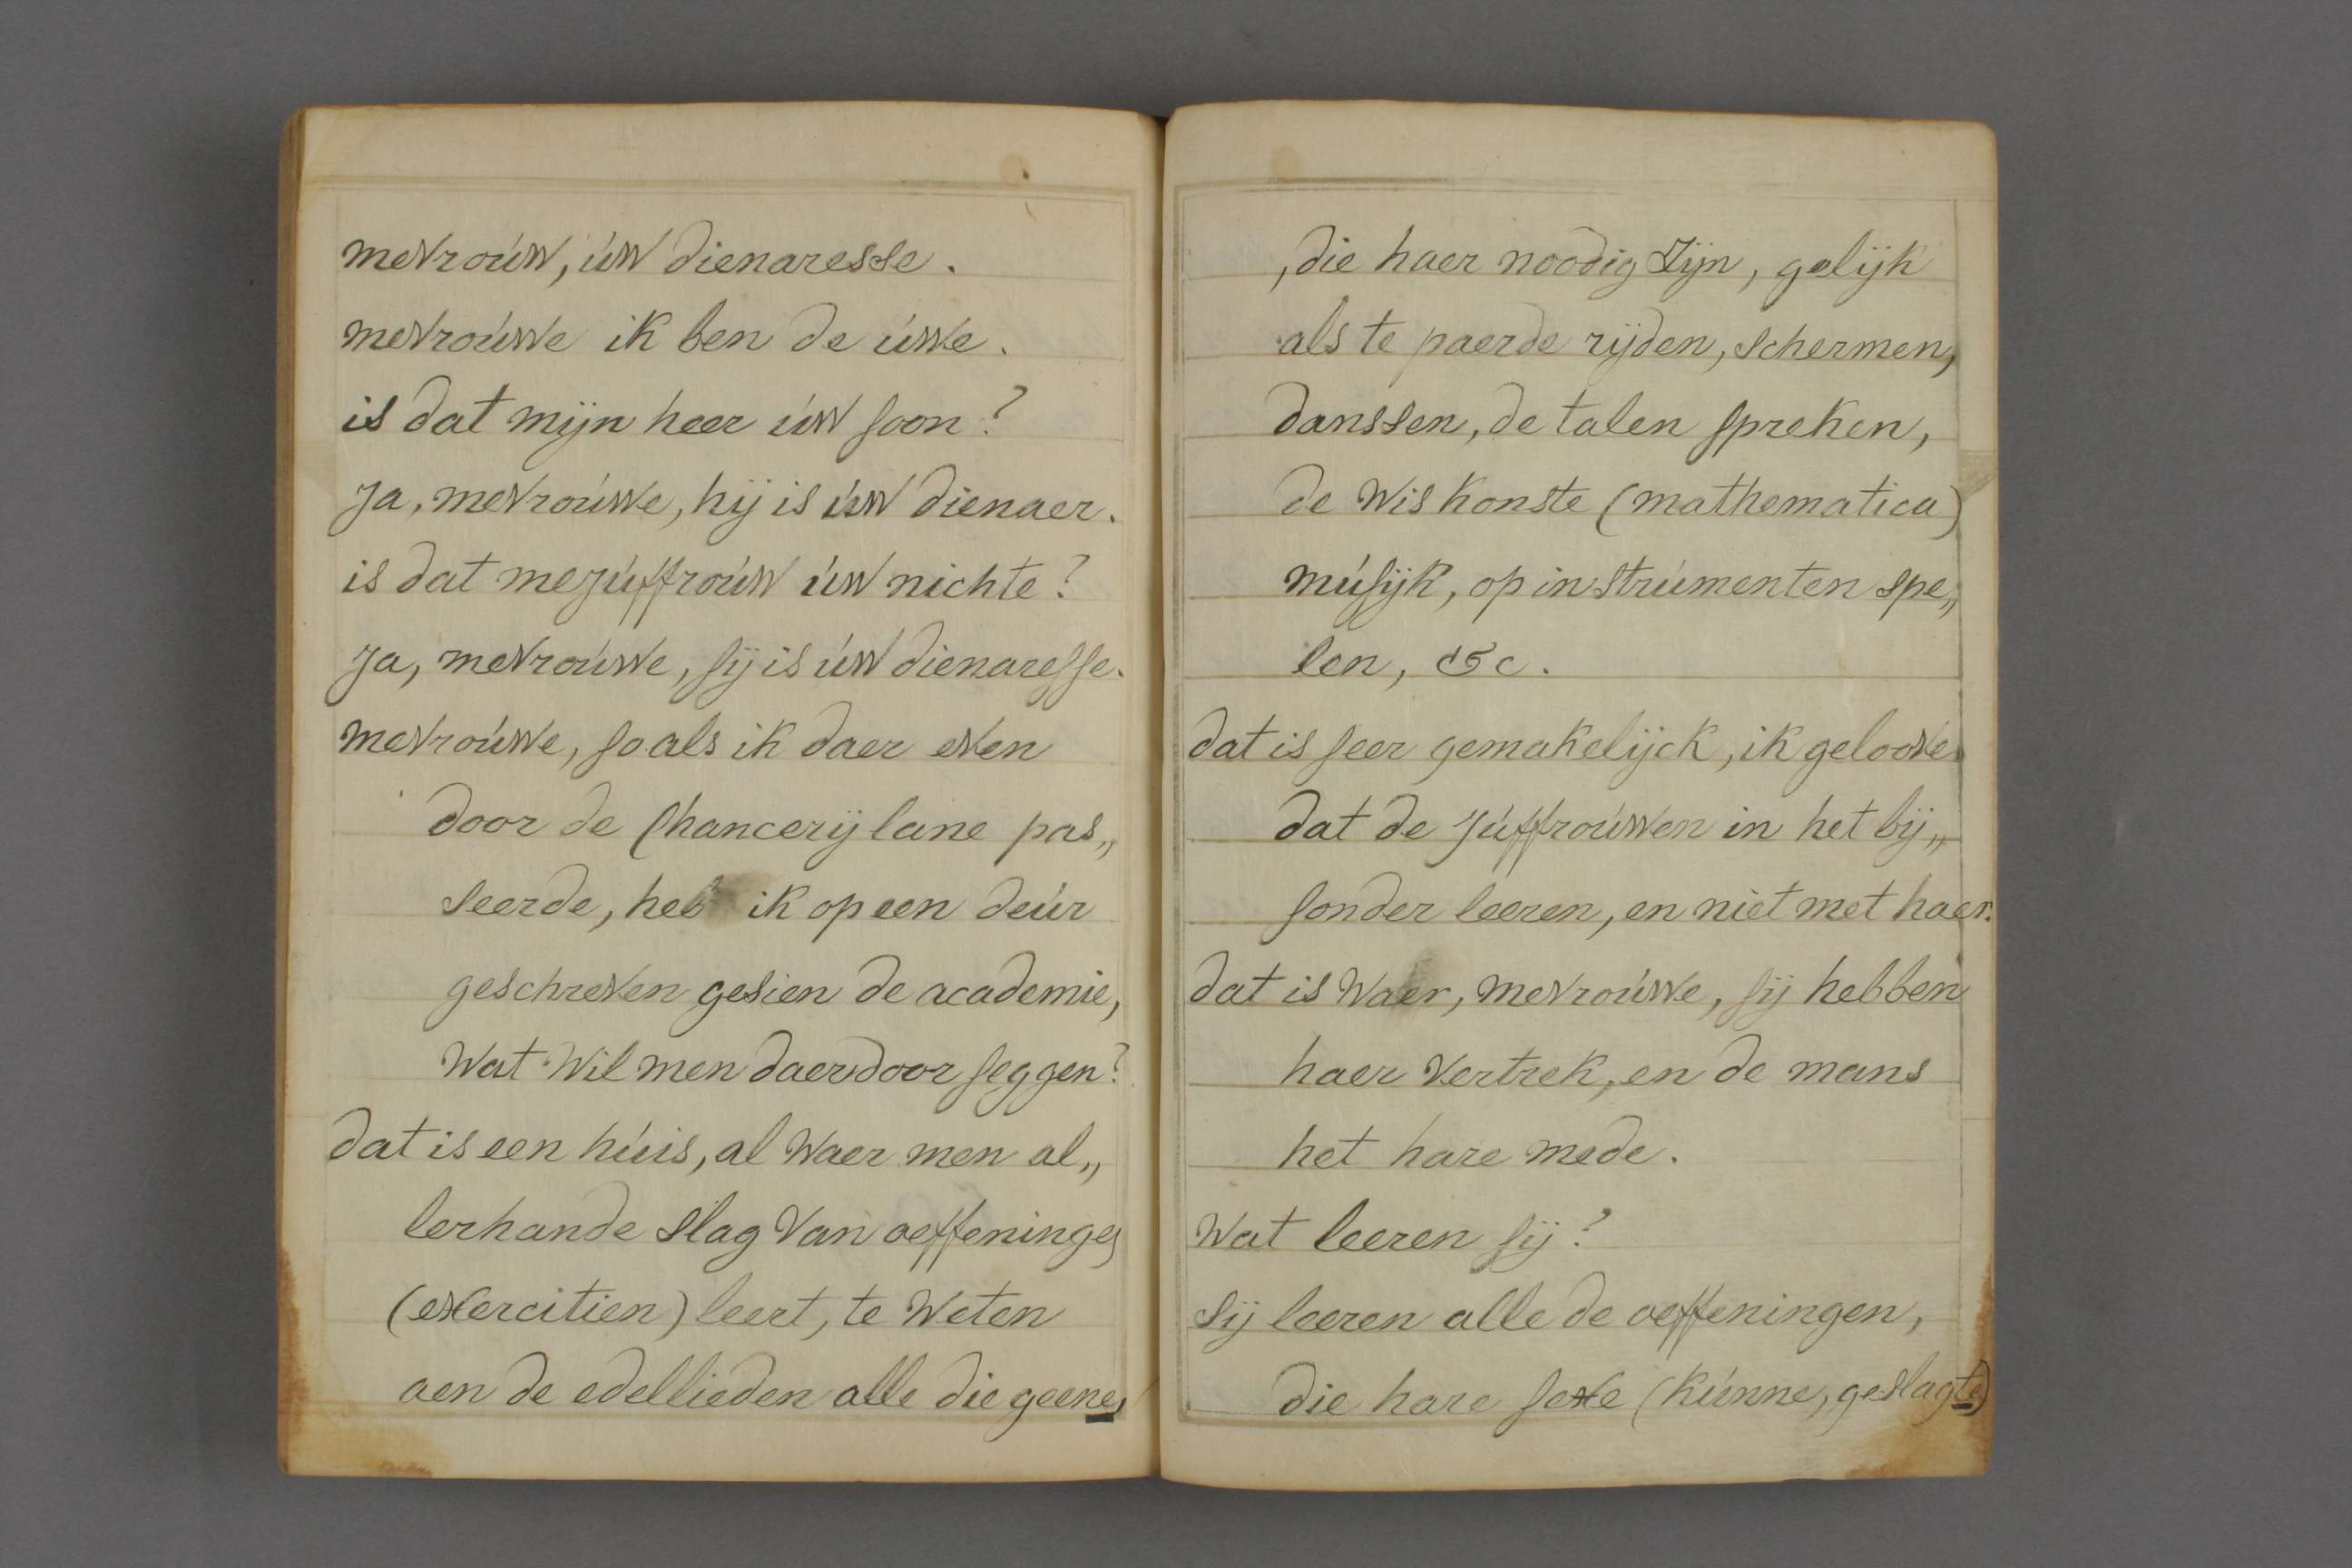 mevroúw, úw dienaresse.
mevroúwe ik ben de úwe.
is dat mijn heer úw soon?
Ja, mevroúwe, hij is úw dienaer.
is dat mejúffroúw úw nichte?
Ja, mevroúwe, sij is úw dienaresse.
mevroúwe, so als ik daer even
door de Chancerij lane pas„
seerde, heb ik op een deúr
geschreven gesien de academie,
Wat Wil men daerdoor seggen?
dat is een húis, al Waer men al„
lerhande slag Van oeffeninges
(exercitien) leert, te Weten
aen de edellieden alle die geenes
, die haer noodig Zijn, gelijk
als te paerde rijden, schermen,
danssen, de talen spreken,
de Wis konste (mathematica)
músijk, op instrúmenten spe„
len, &c.
dat is seer gemakelijck, ik geloove
dat de Júffroúwen in het bij„
sonder leeren, en niet met haer.
dat is Waer, mevroúwe, sij hebben
haer Vertrek, en de mans
het hare mede.
Wat leeren sij?
Sij leeren alle de oeffeningen,
die hare sexe (kúnne, geslagte)